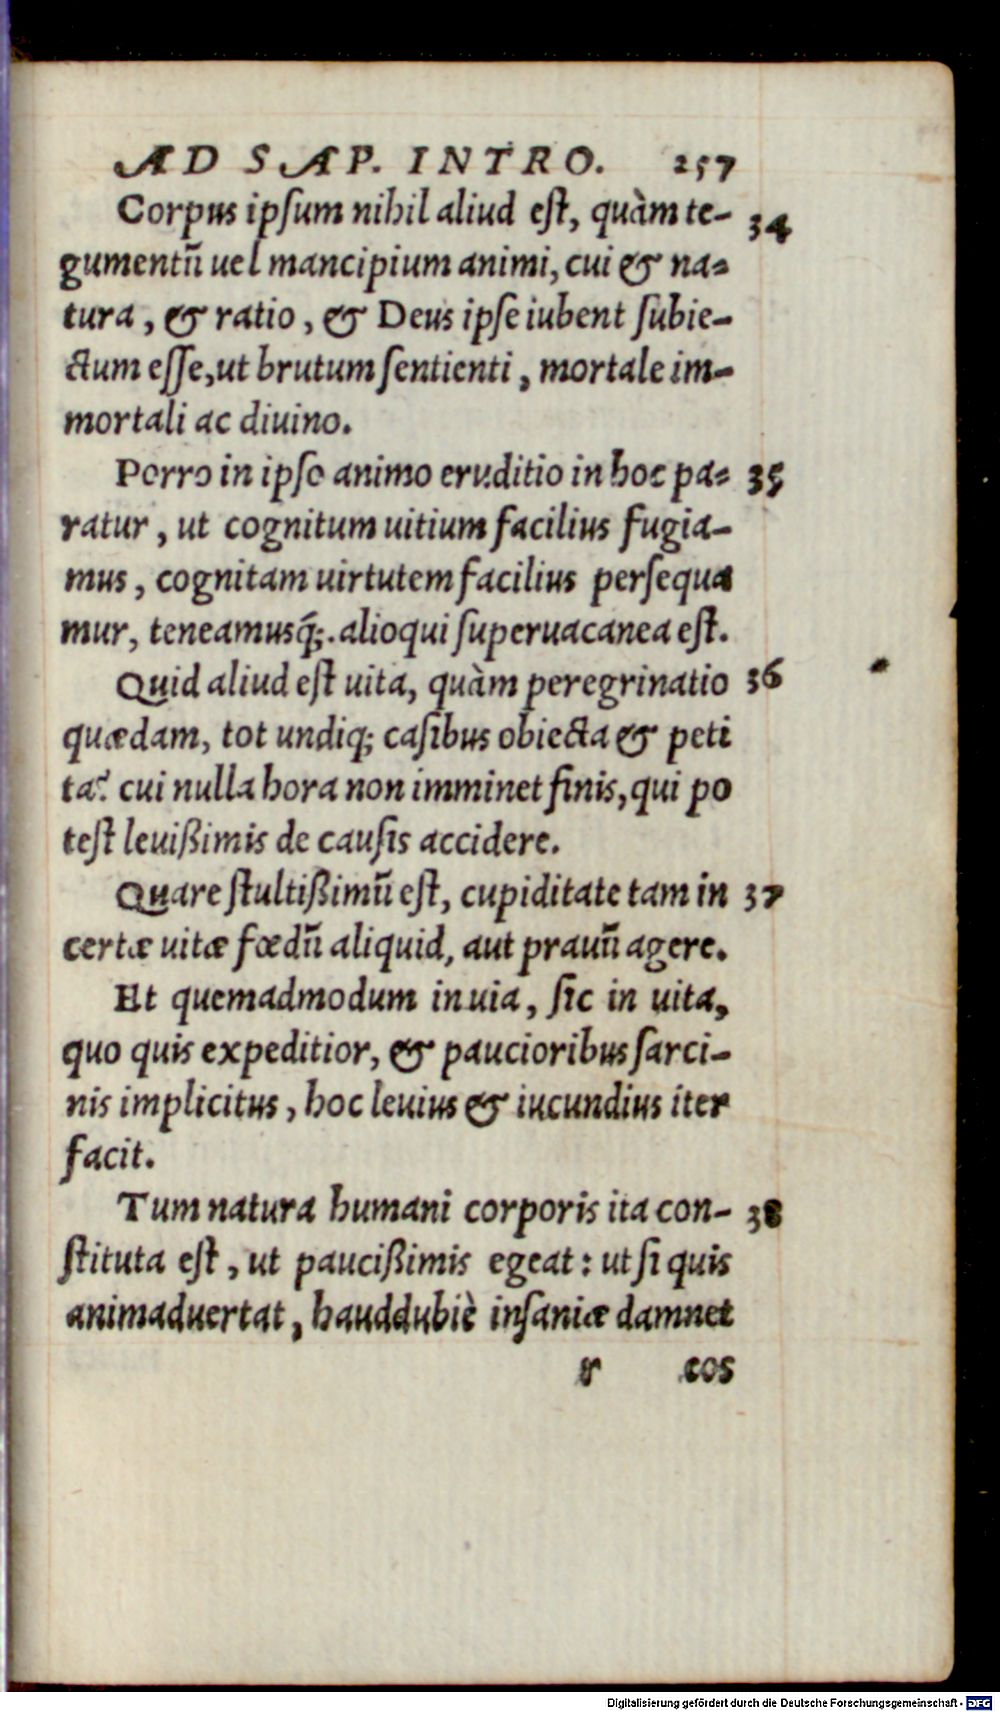 AD SAP. INTRO. 257
Corpus ipſum nihil aliud eſt, quàm te- 34
gumentũ uel mancipium animi, cui & na-
tura, & ratio, & Deus ipſe iubent ſubie-
ctum eſſe, ut brutum ſentienti, mortale im-
mortali ac diuino.
Porro in ipſo animo eruditio in hoc pa- 35
ratur, ut cognitum uitium facilius fugia-
mus, cognitam uirtutem facilius perſequa
mur, teneamusq́;. alioqui ſuperuacanea eſt.
Quid aliud eſt uita, quàm peregrinatio 36
quædam, tot undiq; caſibus obiecta & peti
ta? cui nulla hora non imminet finis, qui po
teſt leuißimis de cauſis accidere.
Quare ſtultißimũ eſt, cupiditate tam in 37
certæ uitæ fœdũ aliquid, aut prauũ agere.
Et quemadmodum in uia, ſic in uita,
quo quis expeditior, & paucioribus ſarci-
nis implicitus, hoc leuius & iucundius iter
facit.
Tum natura humani corporis ita con- 38
ſtituta eſt, ut paucißimis egeat: ut ſi quis
animaduertat, hauddubiè inſaniæ damnet
r eos
Digitalisierung gefördert durch die Deutsche Forschungsgemeinschaft - DFG